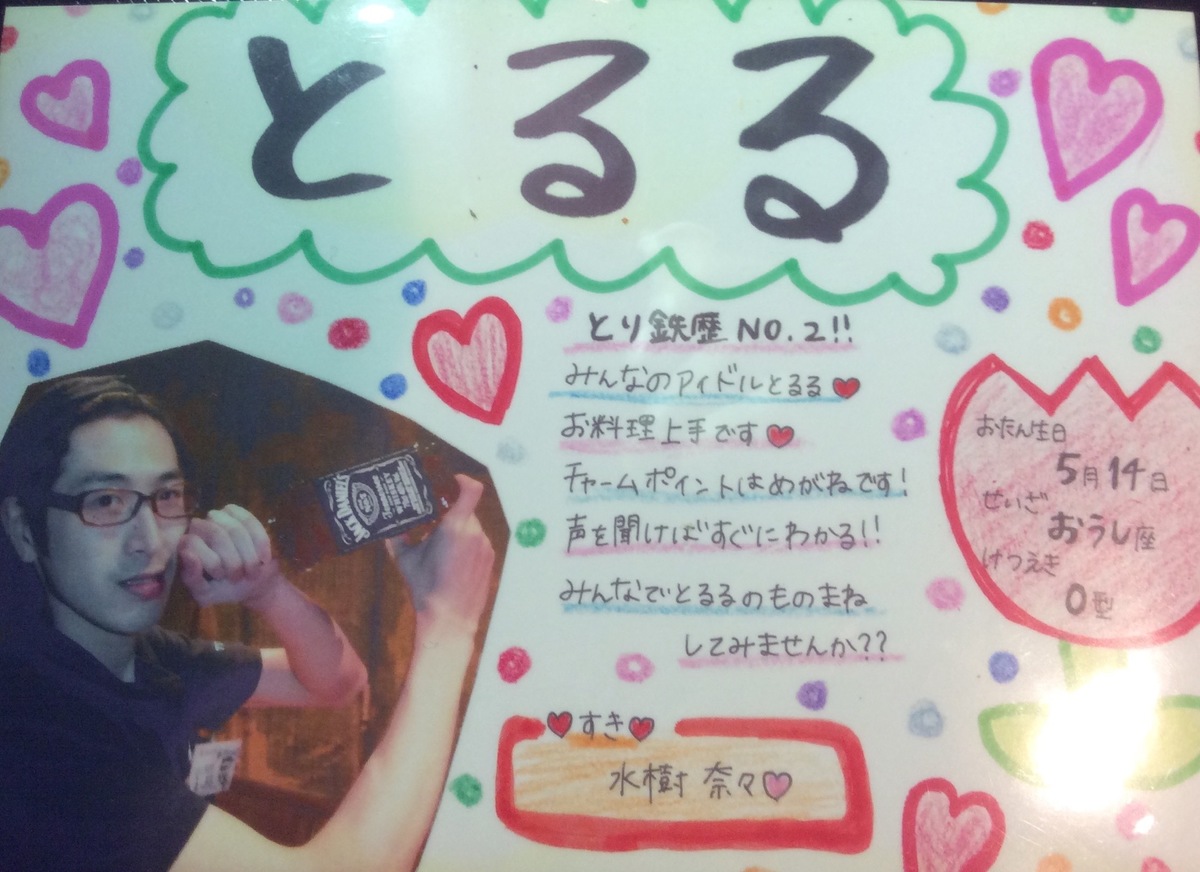 とるる
とり鉄歴NO.2!!
みんなのアイドルとるる♥
お料理上手です♥
チャームポイントはめがねです!
声を聞けばすぐにわかる!!
みんなでとるるのものまね
してみませんか??
♥すき♥
水樹 奈々♡
おたん生日
5月14日
せいざ
おうし座
けつえき
O型
JACK DANIEL'S